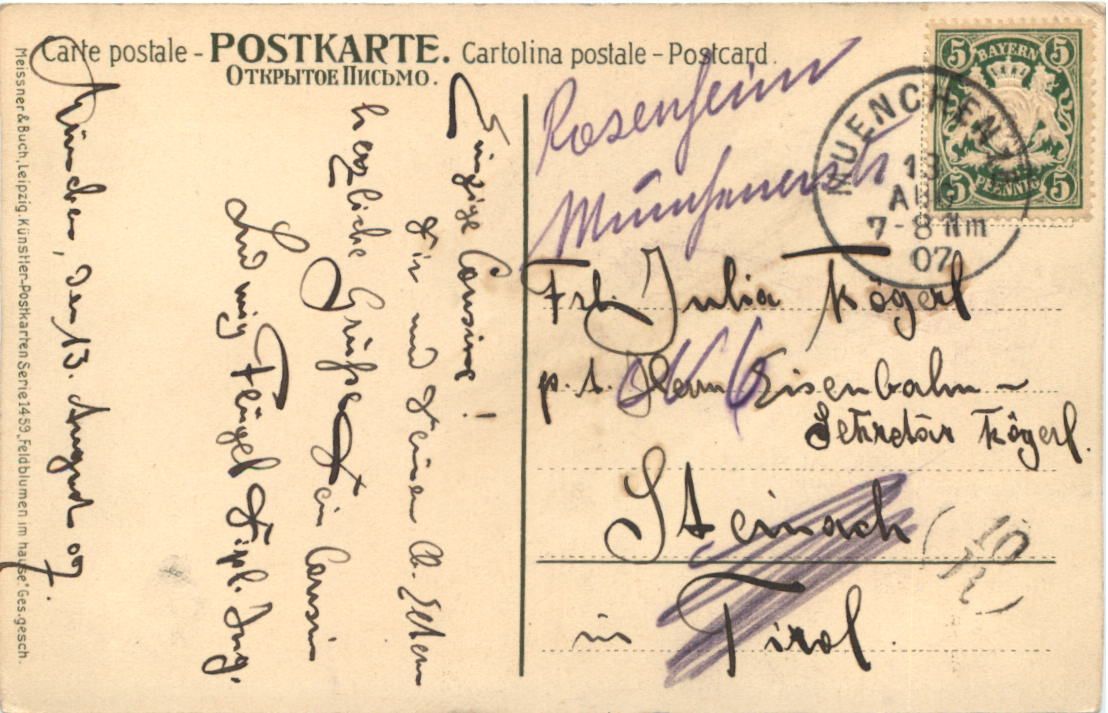 Carte postale - POSTKARTE. Cartolina postale - Postcard.
Открытое Письмо.
Meissner & Buch, Leipzig. Künstler-Postkarten Serie 1459 „Feldblumen im hause." Ges. gesch.
München, den 13. August 07.
Einzige Cousine!
Dir und Deinen lb. Eltern
herzliche Grüße Dein Cousin
Ludwig Flügel Dipl. Ing.
Rosenheim
Münchenerstr
BAYERN
5 5
5 PFENNIG 5
MUENCHEN
13
AUG
7-8 Nm
07
Frl. Julia Kögerl
p. A. Herrn Eisenbahn-
Sekretär Kögerl.
Steinach
in Tirol.
10